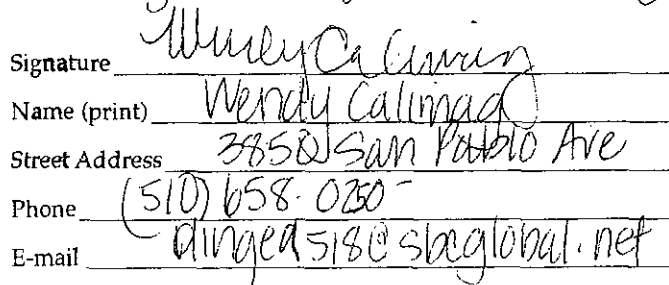 Signature Wendy Calimag
Name (print) Wendy Calimag
Street Address 3850 San Pablo Ave
Phone (510) 658-0250
E-mail dinged518@sbcglobal.net